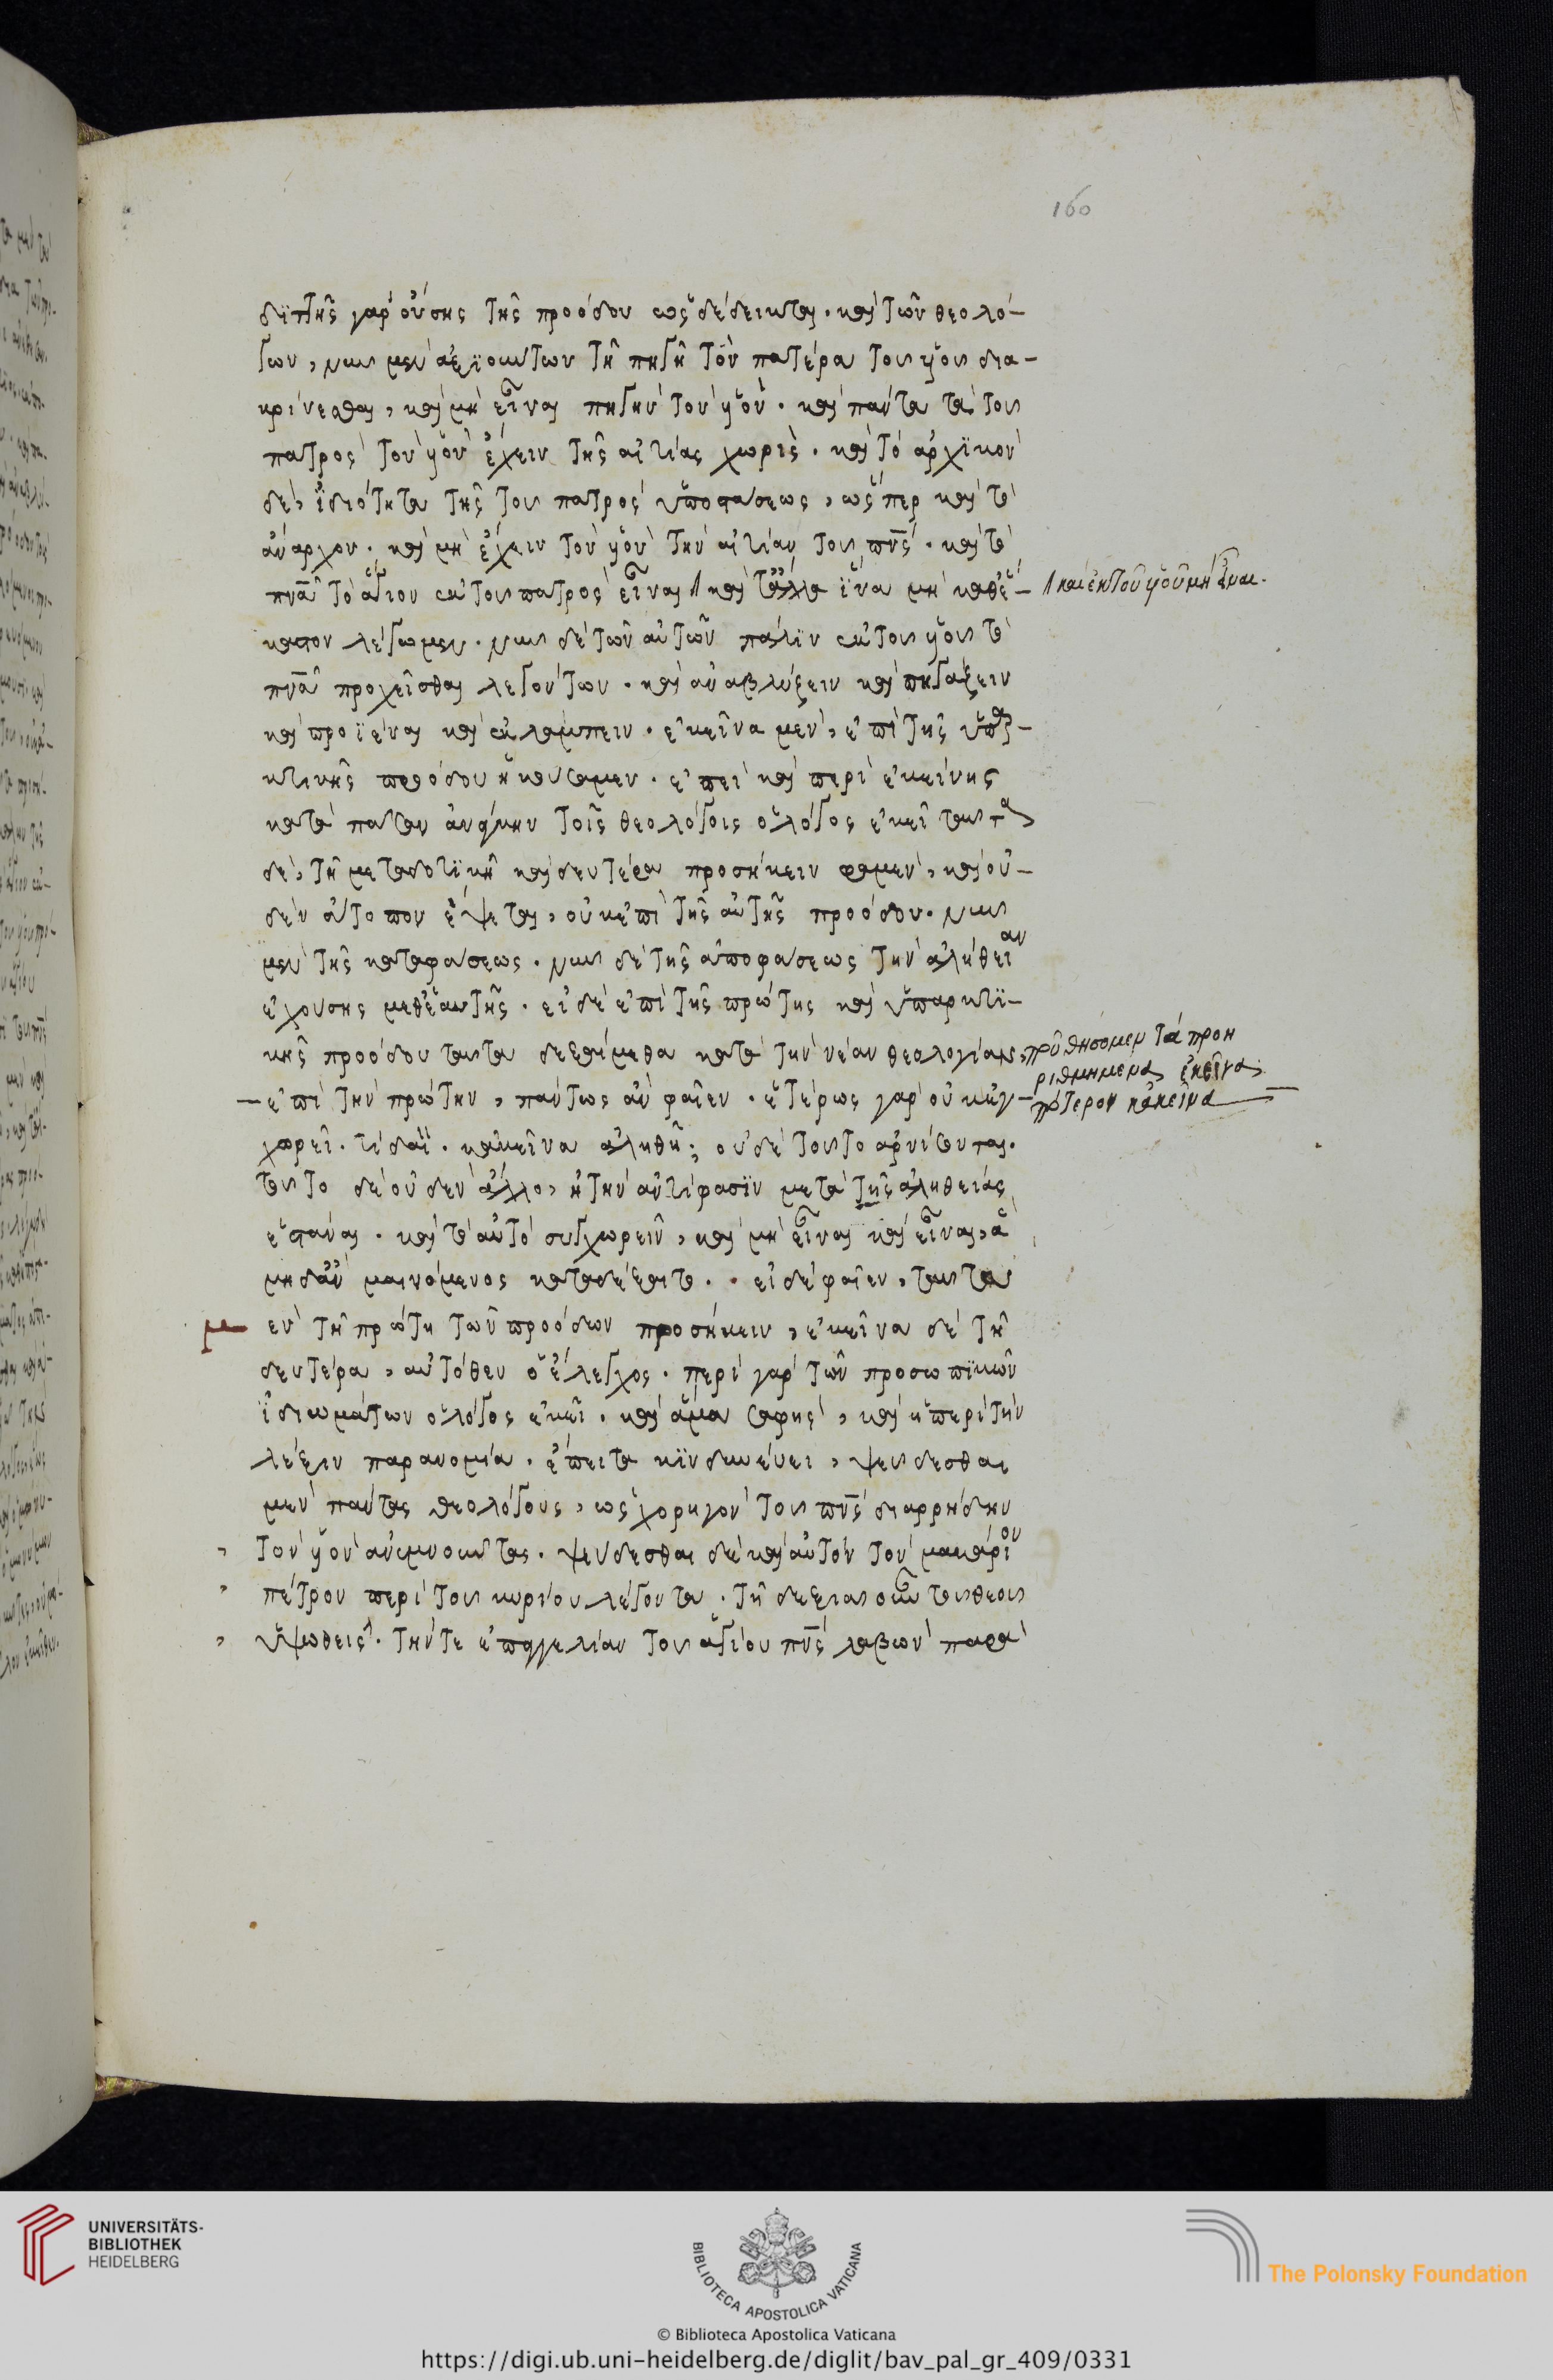 160
διττῆς γὰρ οὔσης τῆς προόδου ὡς δέδεικται. καὶ τῶν θεολό-
γων, νῦν μὲν ἀξιούντων τῇ πηγῇ τὸν πατέρα τοῦ υἱοῦ δια-
κρίνεσθαι, καὶ μὴ εἶναι πηγὴν τὸν υἱόν. καὶ πάντα τὰ τοῦ
πατρὸς τὸν υἱὸν ἔχειν τῆς αἰτίας χωρίς. καὶ τὸ ἀρχικὸν
δὲ, ἰδιότητα τῆς τοῦ πατρὸς ὑποστάσεως, ὥσπερ καὶ τὸ
ἄναρχον. καὶ μὴ ἔχειν τὸν υἱὸν τὴν αἰτίαν τοῦ πνς. καὶ τὸ
πνα τὸ ἅγιον ἐκ τοῦ πατρὸς εἶναι καὶ τἆλλα ἵνα μὴ καθέ-
καὶ ἐκ τοῦ υἱοῦ μὴ εἶναι.
καστον λέγωμεν. νῦν δὲ τῶν αὐτῶν πάλιν ἐκ τοῦ υἱοῦ τὸ
πνα προχεῖσθαι λεγόντων. καὶ ἀναβλύζειν καὶ πηγάζειν
καὶ προϊέναι καὶ ἐκλάμπειν. ἐκεῖνα μὲν, ἐπὶ τῆς ὑπαρ-
κτικῆς προόδου ἠκούσαμεν. ἐπεὶ καὶ περὶ ἐκείνης
κατὰ πᾶσαν ἀνάγκην τοῖς θεολόγοις ὁ λόγος ἐκεῖ ταῦτα
δὲ, τῇ μεταδοτικῇ καὶ δευτέρα προσήκειν φαμὲν, καὶ οὐ-
δὲν ἄτοπον ἕψεται, οὐκ ἐπὶ τῆς αὐτῆς προόδου. νῦν
μὲν τῆς καταφάσεως. νῦν δὲ τῆς ἀποφάσεως τὴν ἀλήθειαν
ἐχούσης μεθ' ἑαυτῆς. εἰ δὲ ἐπὶ τῆς πρώτης καὶ ὑπαρκτι-
κῆς προόδου ταῦτα δεξαίμεθα κατὰ τὴν νέαν θεολογίαν,
θήσομεν τὰ προη
ριθμημένα ἐκεῖνα
πότερον κἀκεῖνα
ἐπὶ τὴν πρώτην, πάντως ἂν φαῖεν. ἑτέρως γὰρ οὐκ ἐγ-
χωρεῖ. τί δαί. κἀκεῖνα ἀληθῆ; οὐδὲ τοῦτο ἀρνίσονται.
τοῦτο δὲ οὐδὲν ἄλλο, ἢ τὴν ἀντίφασιν μετὰ τῆς ἀληθείας
ἱστάναι. καὶ τὸ αὐτὸ συγχωρεῖν, καὶ μὴ εἶναι καὶ εἶναι, ἃ
μηδ' ἂν μαινόμενος καταδέξαιτο. εἰ δὲ φαῖεν, ταῦτα
ἐν τῇ πρώτη τῶν προόδων προσήκειν, ἐκεῖνα δὲ τῇ
δευτέρα, αὐτόθεν ὁ ἔλεγχος. περὶ γὰρ τῶν προσωπικῶν
ἰδιωμάτων ὁ λόγος ἐκεῖ. καὶ ἅμα σαφὴς, καὶ ἡ περὶ τὴν
λέξιν παρανομία. ἔπειτα κινδυνεύει, ψεύδεσθαι
μὲν πάντας θεολόγους, ὡς χορηγὸν τοῦ πνς διαρρήδην
τὸν υἱὸν ἀνυμνοῦντας. ψεύδεσθαι δὲ καὶ αὐτὸν τὸν μακάριον
πέτρον περὶ τοῦ κυρίου λέγοντα. τῇ δεξιᾶ οὖν τοῦ θεοῦ
ὑψωθεὶς. τήν τε ἐπαγγελίαν τοῦ ἁγίου πνς λαβὼν παρὰ
UNIVERSITÄTS-
BIBLIOTHEK
HEIDELBERG
BIBLIOTECA APOSTOLICA VATICANA
The Polonsky Foundation
© Biblioteca Apostolica Vaticana
https://digi.ub.uni-heidelberg.de/diglit/bav_pal_gr_409/0331